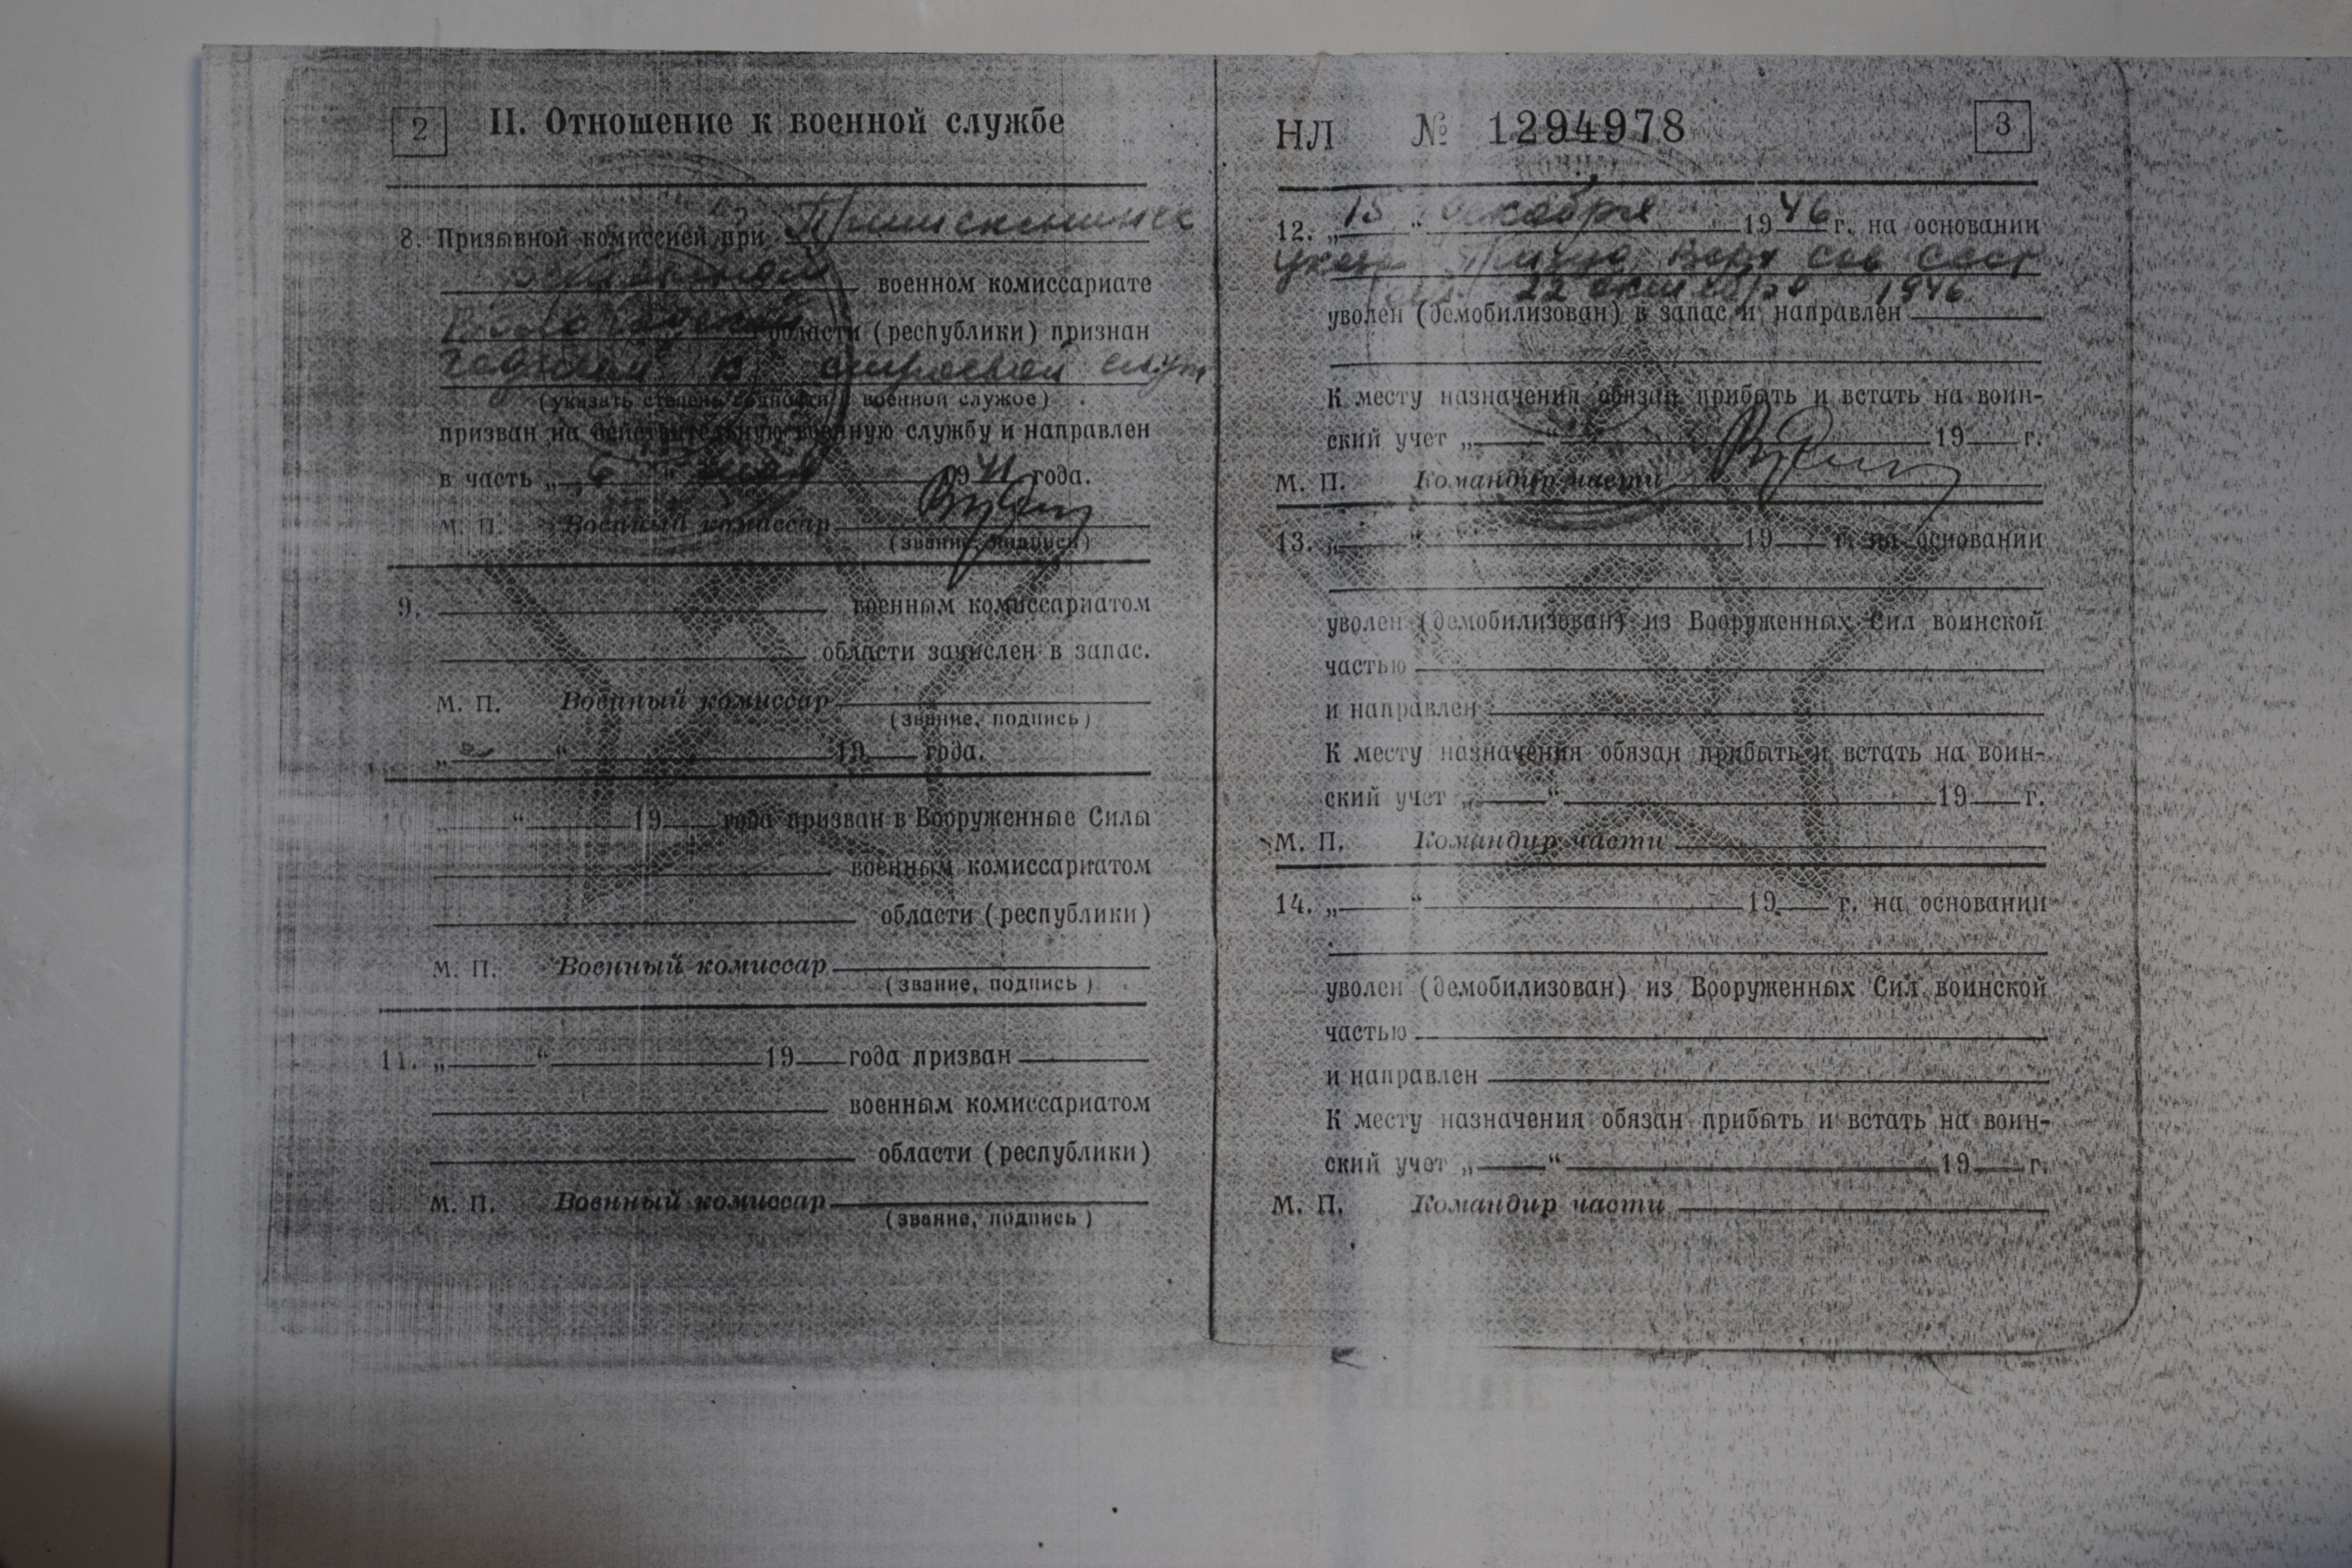 2
II. Отношение к военной службе
8. Призывной комиссией при
военном комиссариате
области (республики) признан
годным к строевой служ
(указать степень годности к военной службе)
призван на действительную военную службу и направлен
в часть „ 6 “ 1941 года.
М. П. Военный комиссар
(звание, подпись)
9. военным комиссариатом
области зачислен в запас.
М. П. Военный комиссар
(звание, подпись)
„ “ 19 года.
10. „ “ 19 года призван в Вооруженные Силы
военным комиссариатом
области (республики)
М. П. Военный комиссар
(звание, подпись)
11. „ “ 19 года призван
военным комиссариатом
области (республики)
М. П. Военный комиссар
(звание, подпись)
НЛ № 1294978
3
12. „15“ декабря 1946 г. на основании
Указа През Верх Сов СССР
от 22 октября 1946
уволен (демобилизован) в запас и направлен
К месту назначения обязан прибыть и встать на воин-
ский учет „ “ 19 г.
М. П. Командир части
13. „ “ 19 г. на основании
уволен (демобилизован) из Вооруженных Сил воинской
частью
и направлен
К месту назначения обязан прибыть и встать на воин-
ский учет „ “ 19 г.
М. П. Командир части
14. „ “ 19 г. на основании
уволен (демобилизован) из Вооруженных Сил воинской
частью
и направлен
К месту назначения обязан прибыть и встать на воин-
ский учет „ “ 19 г.
М. П. Командир части